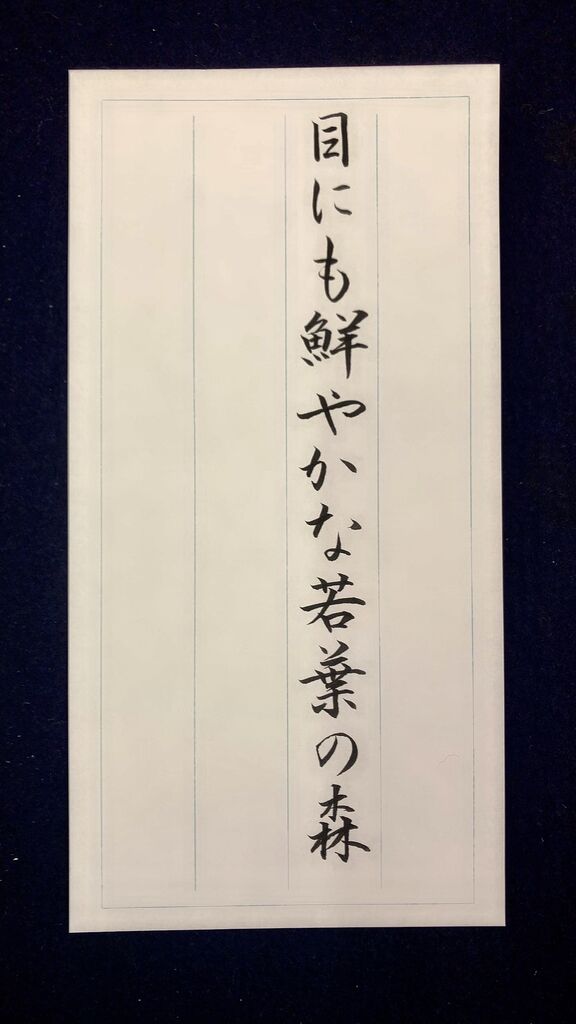 目にも鮮やかな若葉の森